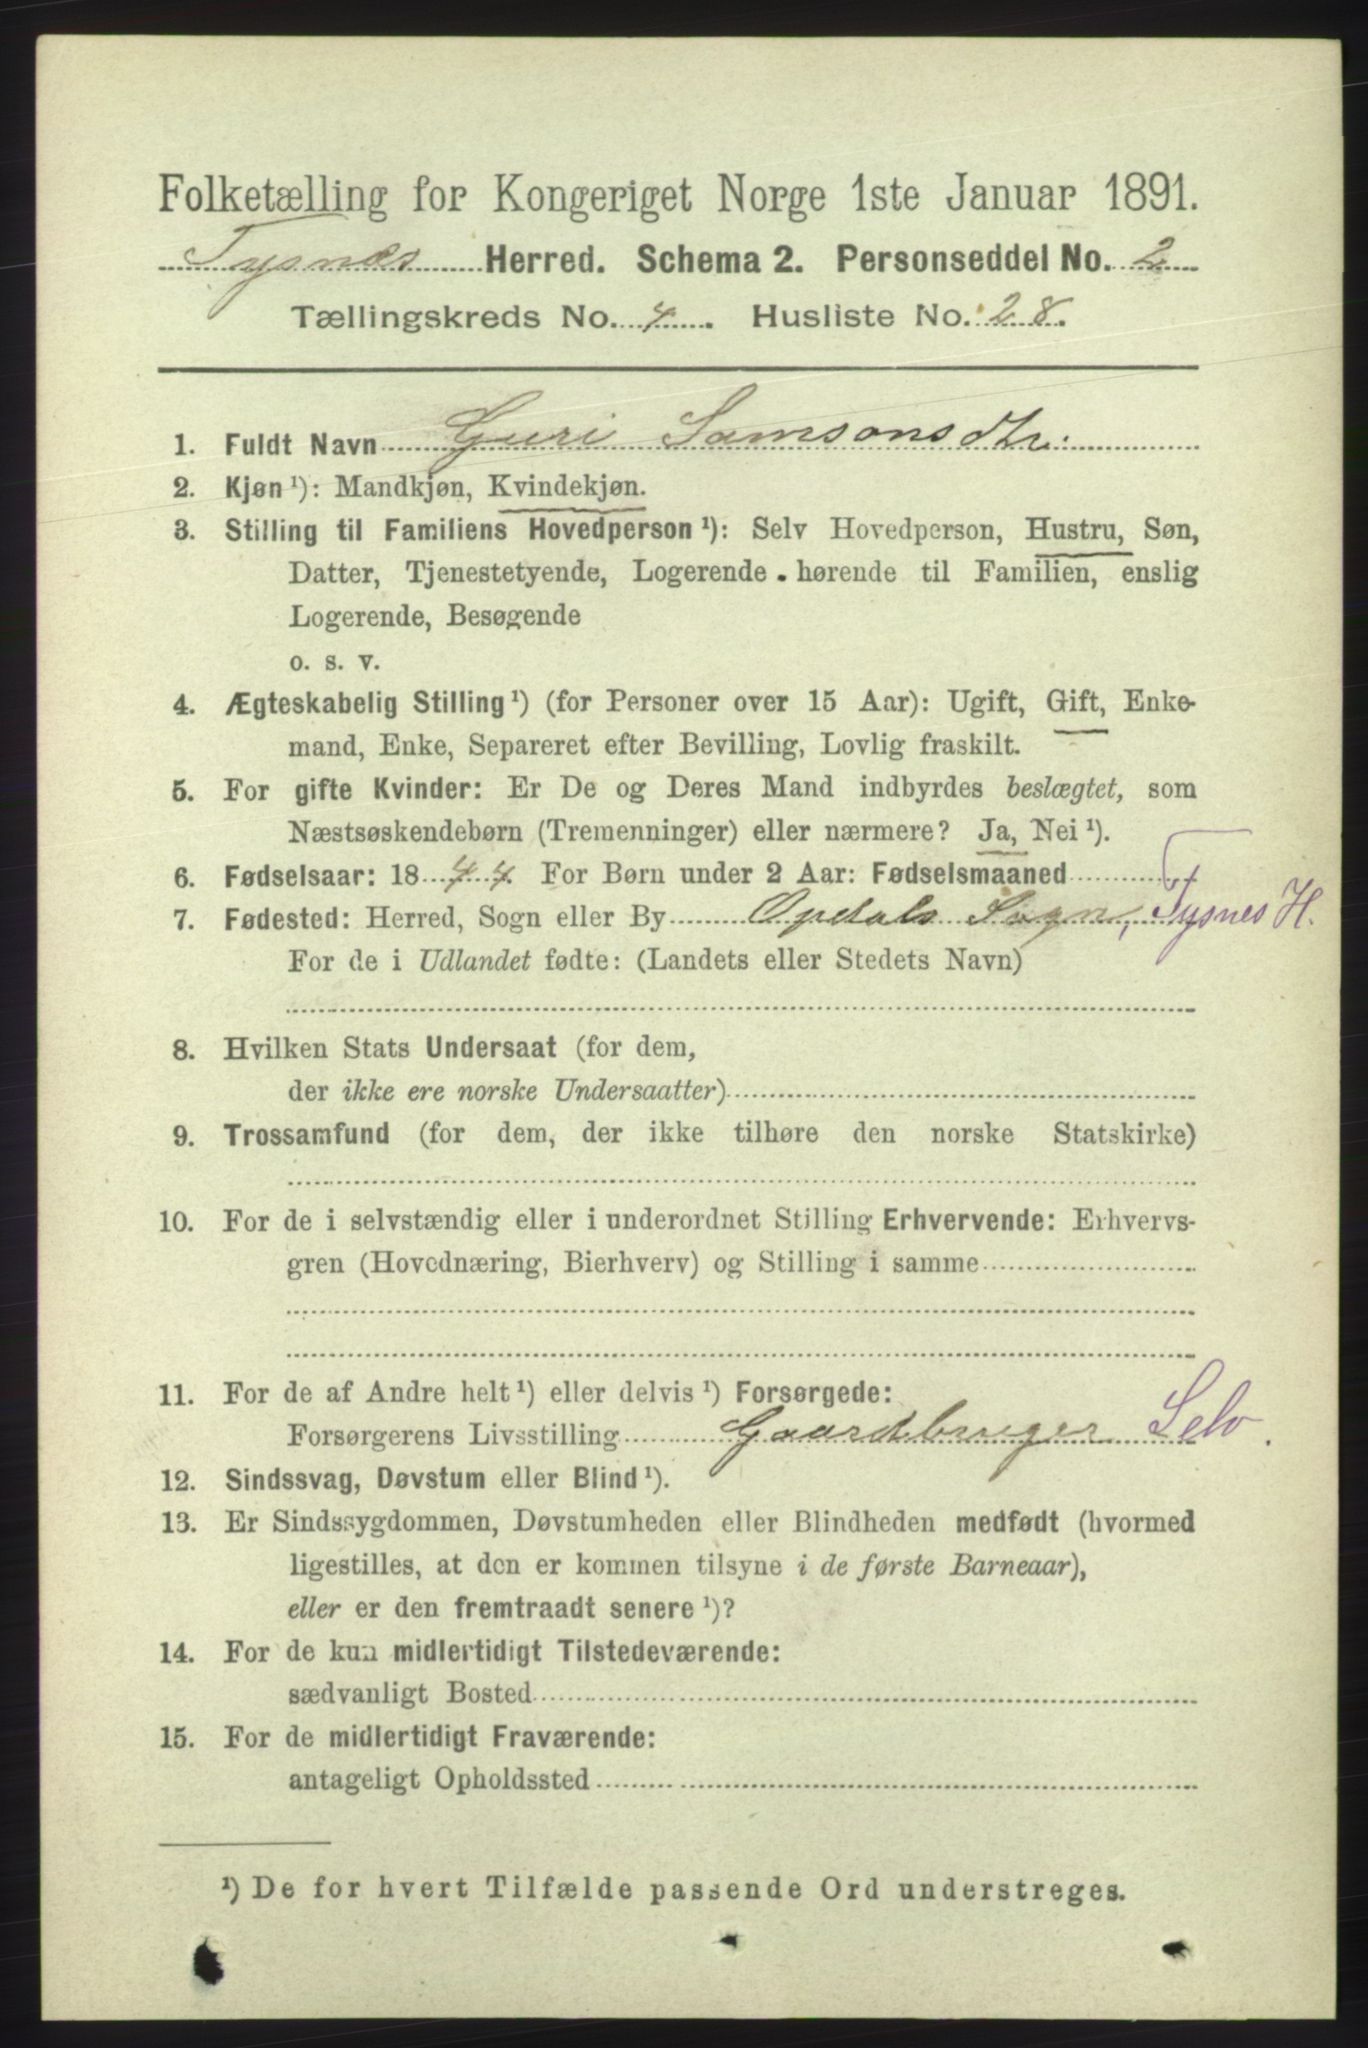 Folketælling for Kongeriget Norge 1ste Januar 1891.
Tysnæs Herred. Schema 2. Personseddel No. 2
Tællingskreds No. 4. Husliste No. 28.
1. Fuldt Navn Guri Samsonsdtr.
2. Kjøn ¹): Mandkjøn, Kvindekjøn.
3. Stilling til Familiens Hovedperson ¹): Selv Hovedperson, Hustru, Søn,
Datter, Tjenestetyende, Logerende hørende til Familien, enslig
Logerende, Besøgende
o. s. v.
4. Ægteskabelig Stilling ¹) (for Personer over 15 Aar): Ugift, Gift, Enke-
mand, Enke, Separeret efter Bevilling, Lovlig fraskilt.
5. For gifte Kvinder: Er De og Deres Mand indbyrdes beslægtet, som
Næstsøskendebørn (Tremenninger) eller nærmere? Ja, Nei ¹).
6. Fødselsaar: 1844. For Børn under 2 Aar: Fødselsmaaned
7. Fødested: Herred, Sogn eller By Opdals Sogn, Tysnes H.
For de i Udlandet fødte: (Landets eller Stedets Navn)
8. Hvilken Stats Undersaat (for dem,
der ikke ere norske Undersaatter)
9. Trossamfund (for dem, der ikke tilhøre den norske Statskirke)
10. For de i selvstændig eller i underordnet Stilling Erhvervende: Erhvervs-
gren (Hovednæring, Bierhverv) og Stilling i samme
11. For de af Andre helt ¹) eller delvis ¹) Forsørgede:
Forsørgerens Livsstilling Gaardbruger Selv.
12. Sindssvag, Døvstum eller Blind ¹).
13. Er Sindssygdommen, Døvstumheden eller Blindheden medfødt (hvormed
ligestilles, at den er kommen tilsyne i de første Barneaar),
eller er den fremtraadt senere ¹)?
14. For de kun midlertidigt Tilstedeværende:
sædvanligt Bosted
15. For de midlertidigt Fraværende:
antageligt Opholdssted
¹) De for hvert Tilfælde passende Ord understreges.